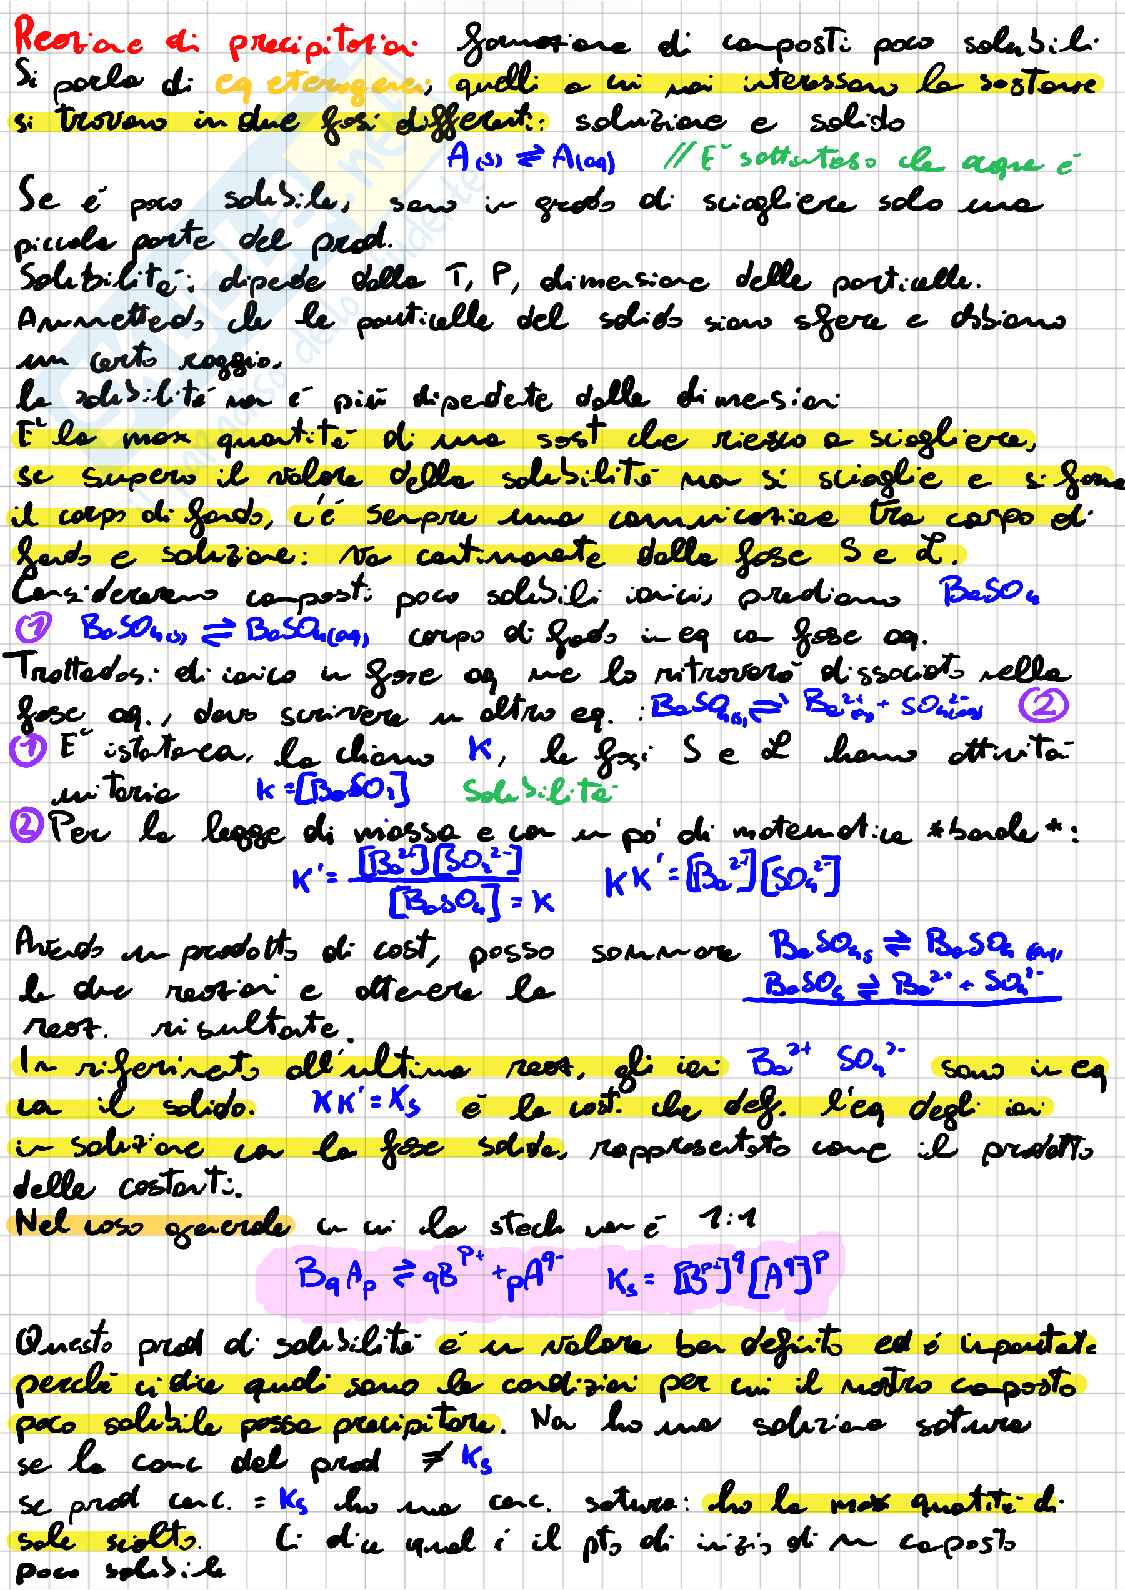 Reazione di precipitazioni formazione di composti poco solubili
Si parla di eq eterogenei, quelli a cui noi interessano le sostanze
si trovano in due fasi differenti: soluzione e solido
A(s) ⇌ A(aq) // E' sottinteso che acqua è
Se è poco solubile, sono in grado di sciogliere solo una
piccola parte del prod.
Solubilità: dipende dalla T, P, dimensione delle particelle.
Ammettendo che le particelle del solido siano sfere e abbiano
un certo raggio.
la solubilità non è più dipendente dalle dimensioni
E' la max quantità di una sost che riesco a sciogliere,
se supero il valore della solubilità non si scioglie e si forma
il corpo di fondo, c'è sempre una comunicazione tra corpo di
fondo e soluzione: va continuamente dalla fase S e L.
Considereremo composti poco solubili ionici, prendiamo BaSO4
① BaSO4(s) ⇌ BaSO4(aq) corpo di fondo in eq con fase aq.
Trattandosi di ionico in fase aq me lo ritroverò dissociato nella
fase aq., devo scrivere un altro eq. : BaSO4(s) ⇌ Ba²⁺(aq) + SO4²⁻(aq) ②
① E' istantanea, la chiamo K, le fasi S e L hanno attività
unitaria K = [BaSO4] Solubilità
② Per la legge di massa e con un po' di matematica *banale*:
K' = [Ba²⁺][SO4²⁻] / [BaSO4] = K KK' = [Ba²⁺][SO4²⁻]
Avendo un prodotto di cost, posso sommare BaSO4 s ⇌ BaSO4 (aq)
le due reazioni e ottenere la BaSO4 ⇌ Ba²⁺ + SO4²⁻
reaz. risultante.
In riferimento all'ultima reaz, gli ioni Ba²⁺ SO4²⁻ sono in eq
con il solido. KK' = Ks è la cost. che def. l'eq degli ioni
in soluzione con la fase solida, rappresentato come il prodotto
delle costanti.
Nel caso generale in cui la stech non è 1:1
BqAp ⇌ qBᵖ⁺ + pA^q⁻ Ks = [Bᵖ⁺]^q [A^q⁻]ᵖ
Questo prod di solubilità è un valore ben definito ed è importante
perché ci dice quali sono le condizioni per cui il nostro composto
poco solubile possa precipitare. Non ho una soluzione satura
se la conc del prod ≠ Ks
se prod conc. = Ks ho una conc. satura: ho la max quantità di
sale sciolto. Ci dice qual è il pto di inizio di un composto
poco solubile